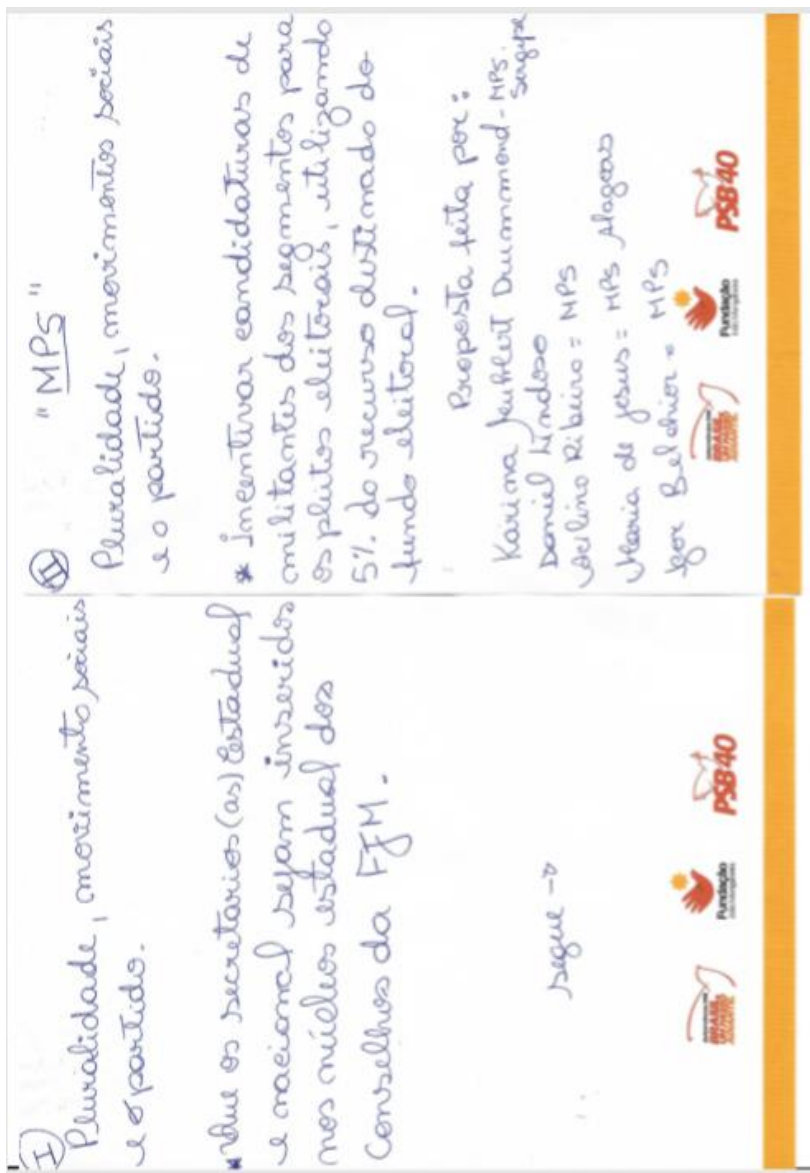 I
Pluralidade, movimento sociais
e o partido.
* Que os secretarios (as) Estadual
e nacional sejam inseridos
nos núcleos estadual dos
Conselhos da FJM.
segue →
BRASIL
Fundação
João Mangabeira
PSB40
II "MPS"
Pluralidade, movimentos sociais
e o partido.
* Incentivar candidaturas de
militantes dos segmentos para
os pleitos eleitorais, utilizando
5% do recurso destinado do
fundo eleitoral.
Proposta feita por:
Karina Drummond - MPS.
Sergipe
Daniel Lindoso
Ribeiro = MPS
Maria de Jesus = MPS Alagoas
Igor Belchior = MPS
BRASIL
Fundação
João Mangabeira
PSB40